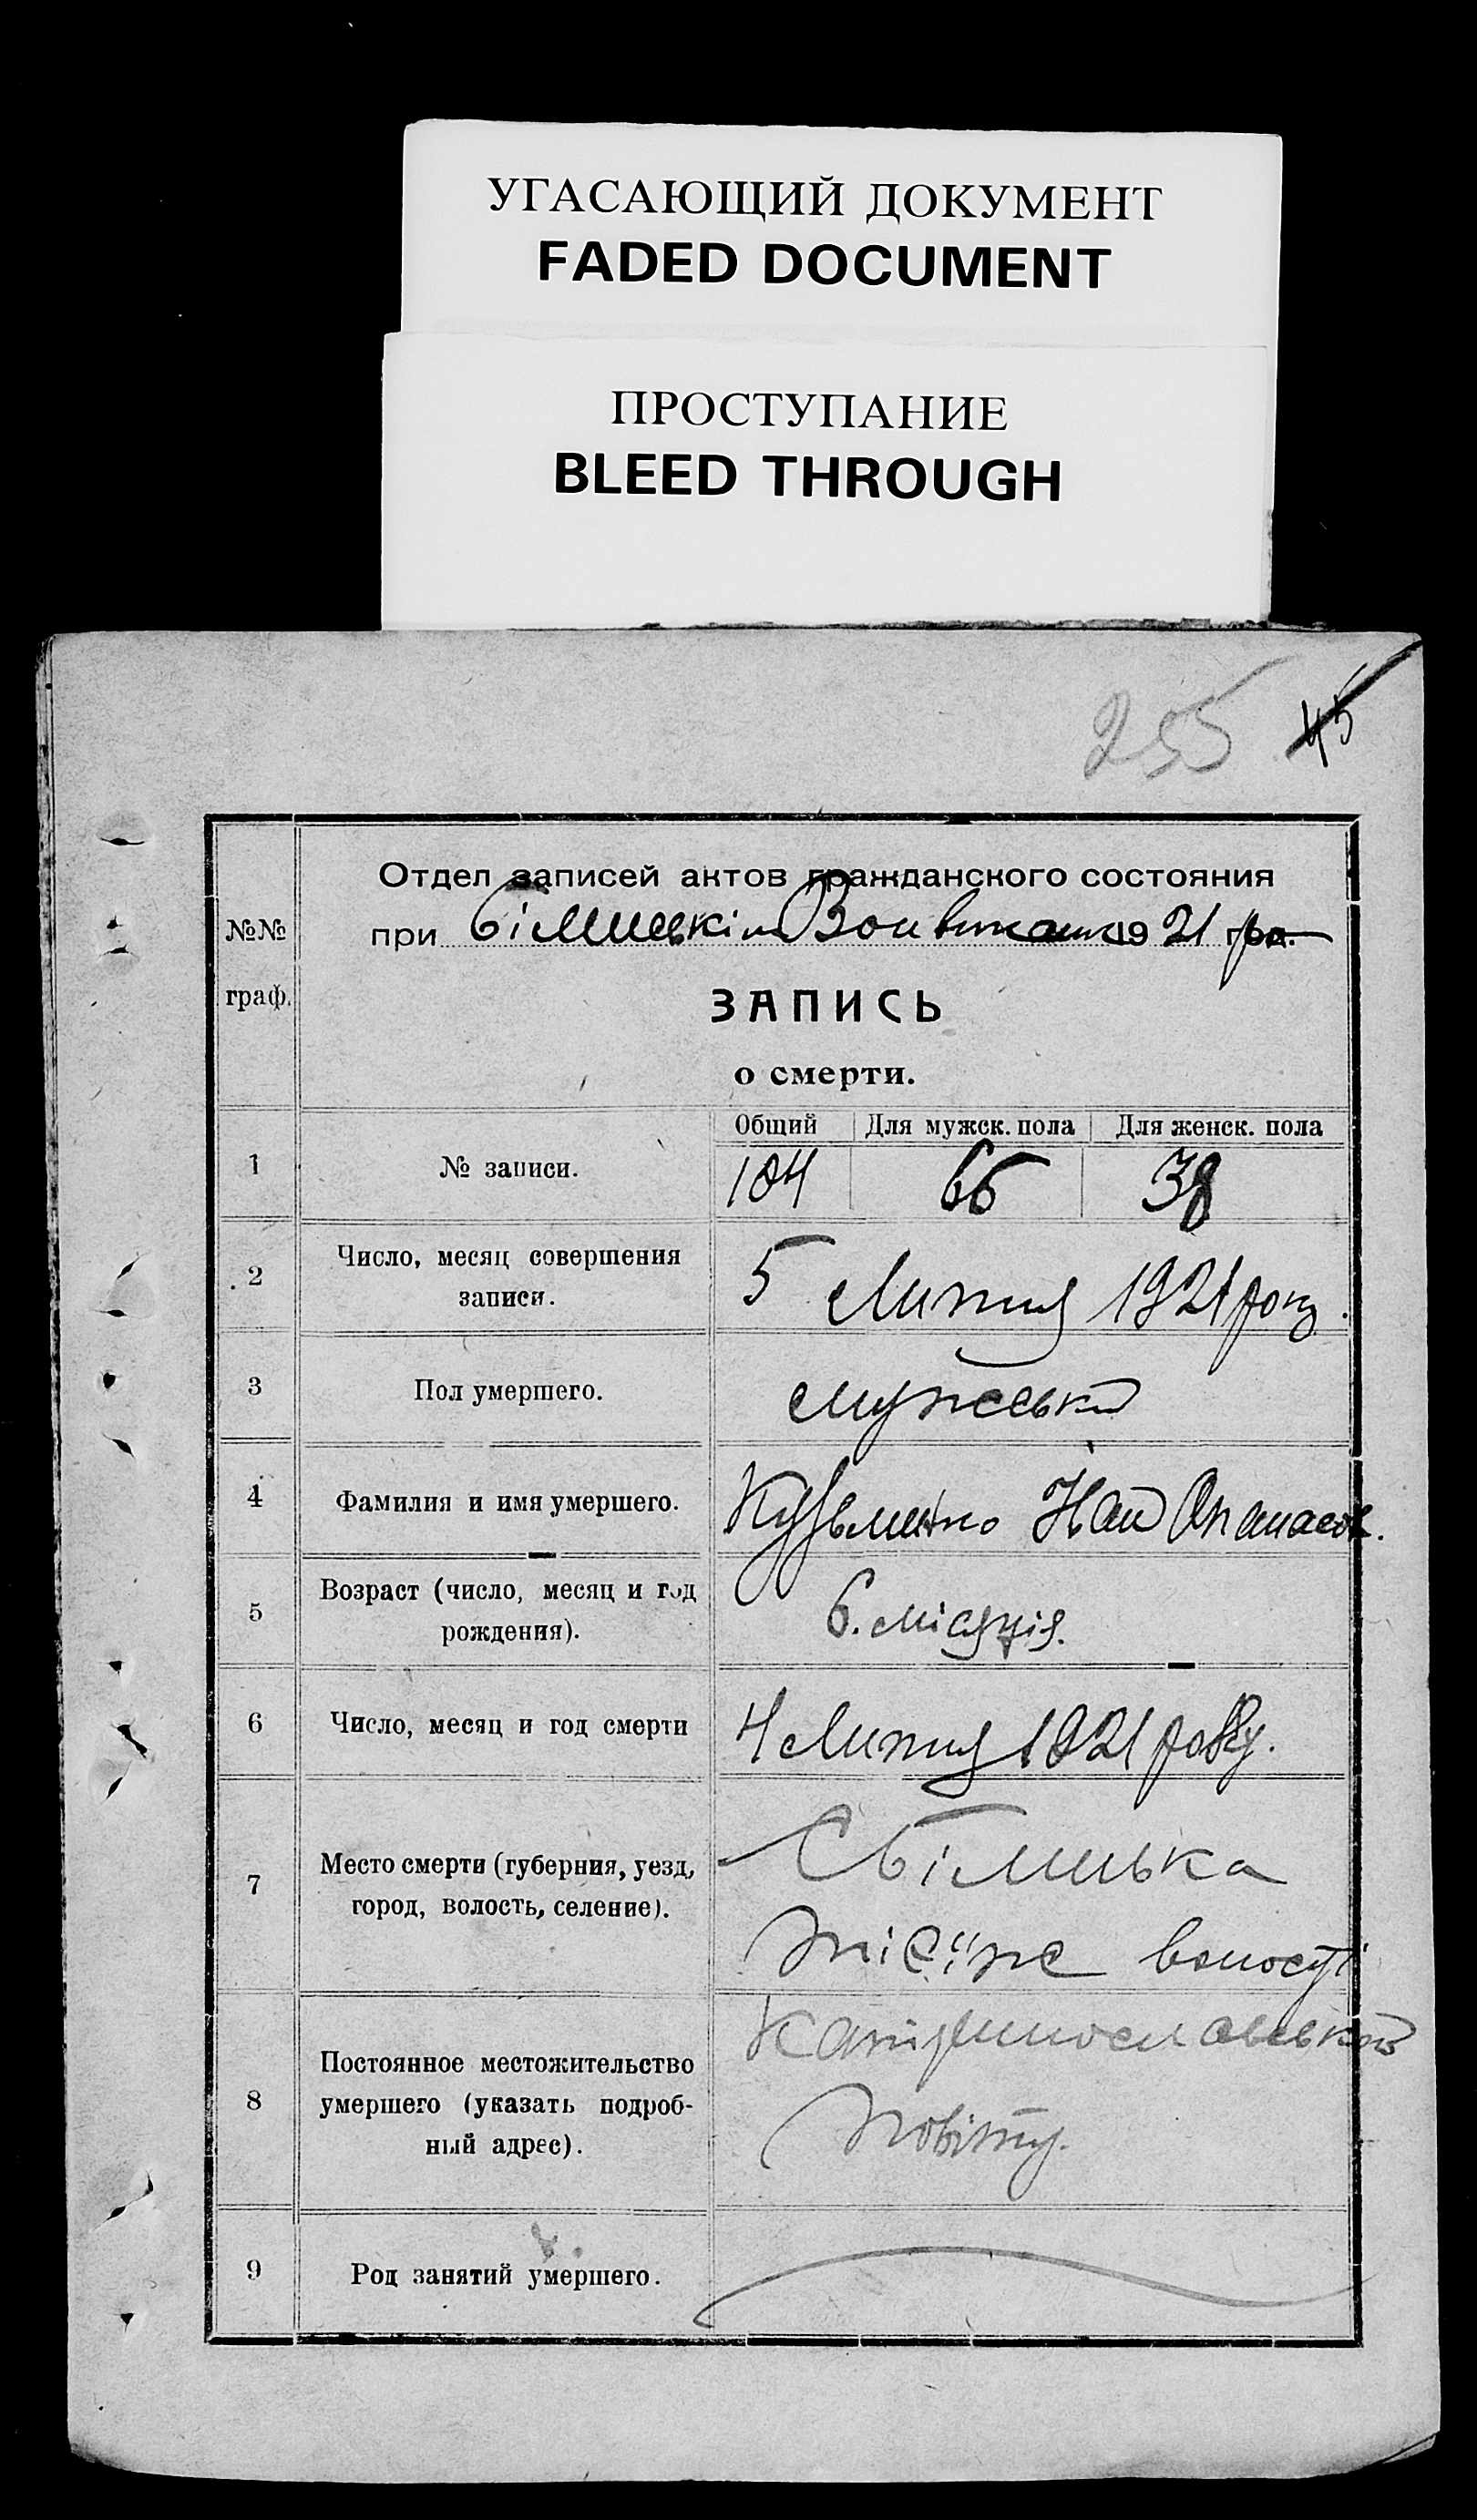 УГАСАЮЩИЙ ДОКУМЕНТ
FADED DOCUMENT
ПРОСТУПАНИЕ
BLEED THROUGH
255 45
Отдел записей актов гражданского состояния
№№ при 1921 год.
граф.
ЗАПИСЬ
о смерти.
Общий Для мужск. пола Для женск. пола
1 № записи. 104 66 38
2 Число, месяц совершения
записи. 5 Липня 1921 року.
3 Пол умершего. мужеський
4 Фамилия и имя умершего.
5 Возраст (число, месяц и год
рождения). 6. місяців.
6 Число, месяц и год смерти 4 Липня 1921 року.
7 Место смерти (губерния, уезд,
город, волость, селение).
волості
8 Постоянное местожительство
умершего (указать подроб-
ный адрес).
повіту.
9 Род занятий умершего.